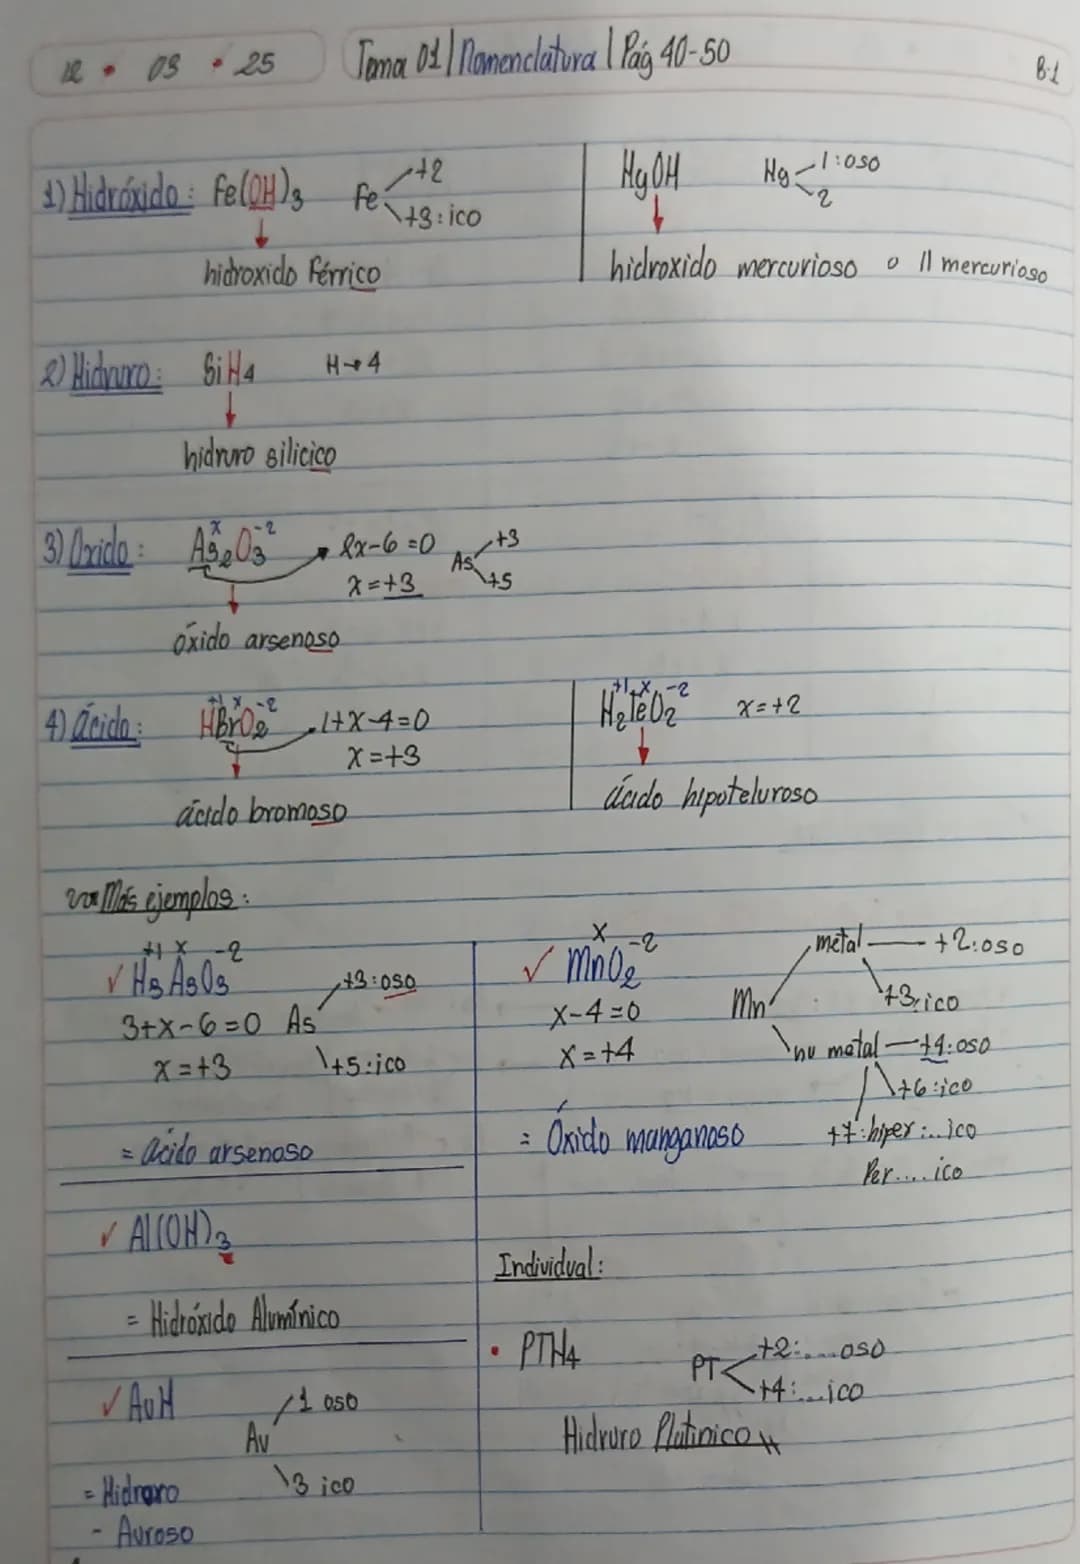 12 • 03 • 25 Tema 01 | Nomenclatura | Pág 40-50 B:1
1) Hidróxido: Fe(OH)3 Fe +2
+3: ico
hidroxido Férrico
HgOH Hg 1: oso
2
hidroxido mercurioso o 11 mercurioso
2) Hidruro: SiH4 H→4
hidruro silicico
3) Oxido: As2O3 x -2 2x-6=0 As +3
x=+3 +5
óxido arsenoso
4) ácido: HBrO2 +1 x -2 1+x-4=0
x=+3
ácido bromoso
H2TeO2 +1 x -2 x=+2
ácido hipoteluroso
Más ejemplos:
+1 x -2
✓ H3AsO3 +3: oso
3+x-6=0 As
x=+3 +5: ico
= ácido arsenoso
✓ Al(OH)3
= Hidróxido Alumínico
✓ AuH 1 oso
Au
3 ico
= Hidruro
- Auroso
x -2
✓ MnO2 metal — +2: oso
x-4=0 Mn +3: ico
x=+4 no metal — +4: oso
+6: ico
= Óxido manganoso +7: hiper:...ico
Per....ico
Individual:
• PTH4 PT +2:....oso
+4:...ico
Hidruro Platinico